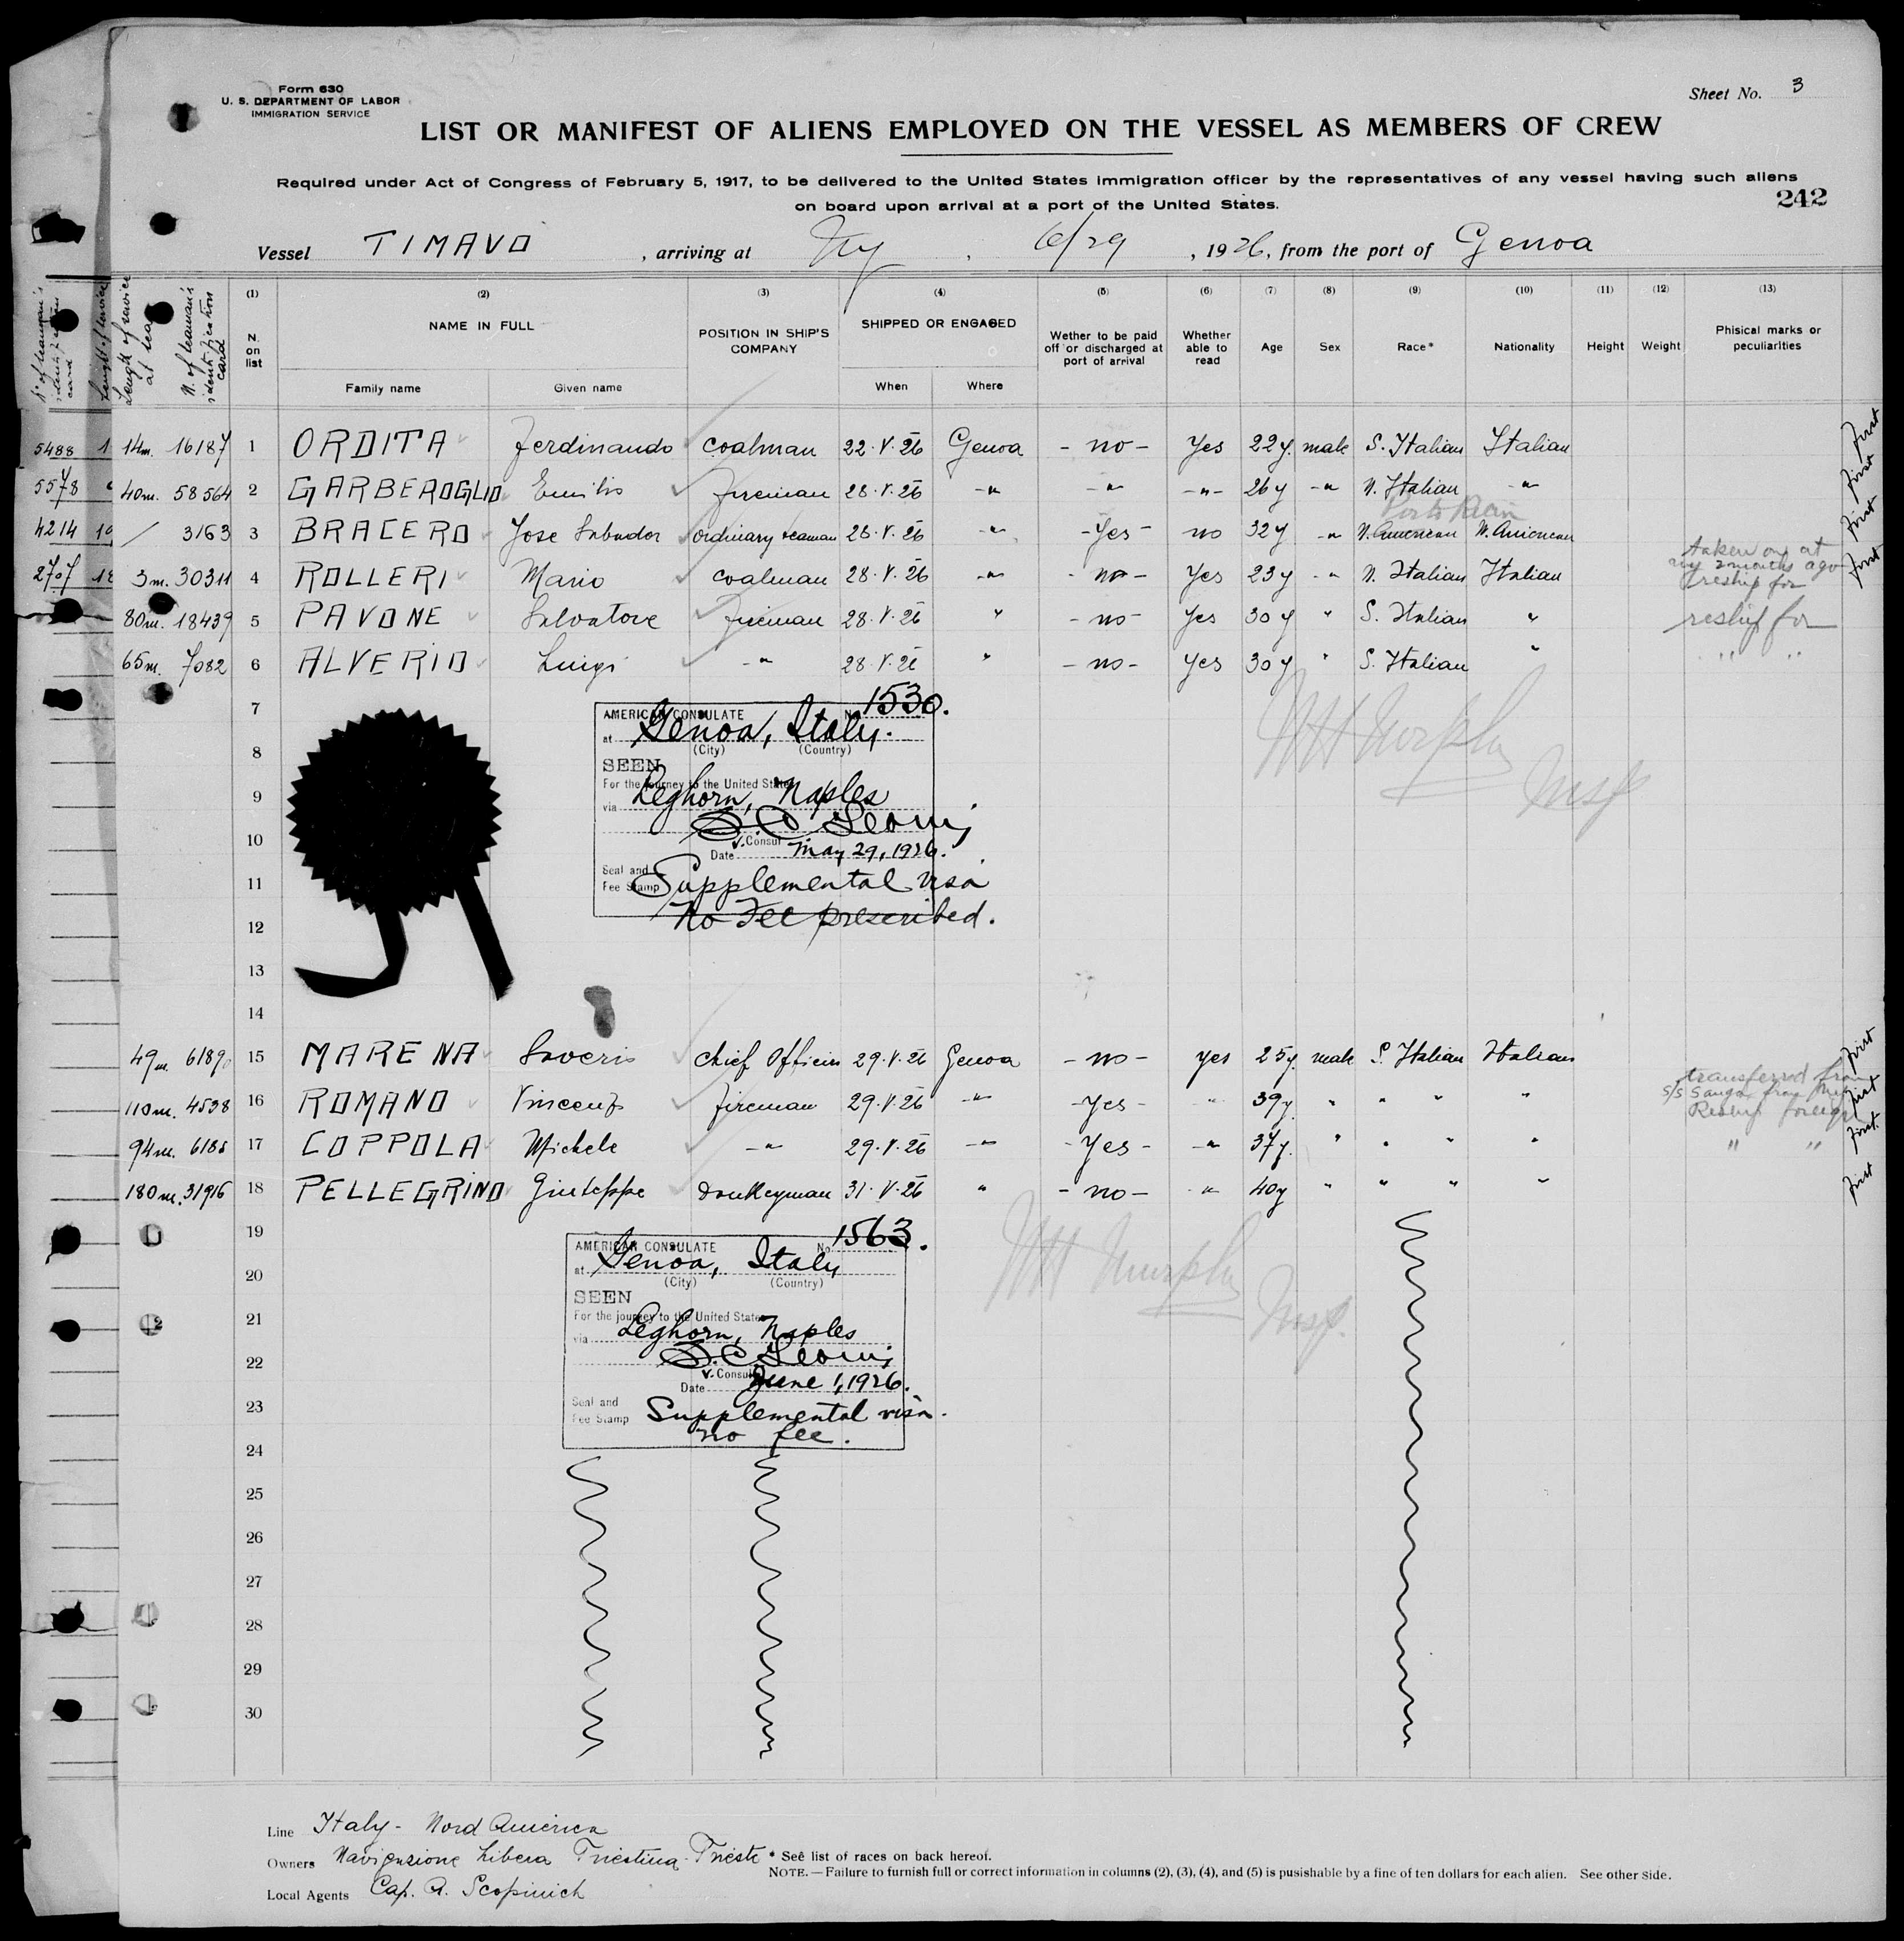 Form 630
U. S. DEPARTMENT OF LABOR
IMMIGRATION SERVICE
Sheet No. 3
LIST OR MANIFEST OF ALIENS EMPLOYED ON THE VESSEL AS MEMBERS OF CREW
Required under Act of Congress of February 5, 1917, to be delivered to the United States Immigration officer by the representatives of any vessel having such aliens
on board upon arrival at a port of the United States.
242
Vessel TIMAVO, arriving at Ny, 6/29, 1926, from the port of Genoa
N. of seaman's identification card
Length of service
Length of service at sea
N. of seaman's identification card
(1) (2) (3) (4) (5) (6) (7) (8) (9) (10) (11) (12) (13)
N. on list
NAME IN FULL
Family name Given name
POSITION IN SHIP'S COMPANY
SHIPPED OR ENGAGED
When Where
Wether to be paid off or discharged at port of arrival
Whether able to read
Age Sex Race* Nationality Height Weight
Phisical marks or peculiarities
5488 1 14m. 16187 1 ORDITA Ferdinando coalman 22.V.26 Genoa - no - Yes 22y. male S. Italian Italian First
5578 40m. 58564 2 GARBEROGLIO Emilio fireman 28.V.26 -"- -"- -"- 26y -" N. Italian -" First
Porto Rican
4214 10 / 3163 3 BRACERO Jose Salvador ordinary seaman 28.V.26 -"- - Yes - no 32y -" N. American N. American First
taken on at
ny 2 months ago
reship for
2707 18 3m. 30311 4 ROLLERI Mario coalman 28.V.26 -"- - no - Yes 23y -" N. Italian Italian First
80m. 18439 5 PAVONE Salvatore fireman 28.V.26 " - no - Yes 30y " S. Italian " reship for
65m. 7082 6 ALVERIO Luigi -" 28.V.26 " - no - Yes 30y " S. Italian " " "
7
8
9
10
11
12
13
14
AMERICAN CONSULATE No. 1530.
at Genoa, Italy.
(City) (Country)
SEEN
For the journey to the United States
via Leghorn, Naples
V. Consul
Date May 29, 1926.
Seal and
Fee Stamp
Supplemental visa
No Fee prescribed.
WH Murphy
Insp
49m. 6189 15 MARENA Saverio chief Officer 29.V.26 Genoa - no - yes 25y. male S. Italian Italian First
transferred from
110m. 4538 16 ROMANO Vincenzo fireman 29.V.26 -"- - Yes - " 39y. " " " " First
Reship foreign
94m. 6185 17 COPPOLA Michele -"- 29.V.26 -"- - Yes - -" 37y. " " " " " " First.
180m. 31916 18 PELLEGRINO Giuseppe donkeyman 31.V.26 " - no - " 40y " " " " First
19
20
21
22
23
24
25
26
27
28
29
30
AMERICAN CONSULATE No. 1563.
at Genoa, Italy
(City) (Country)
SEEN
For the journey to the United States
via Leghorn, Naples
V. Consul
Date June 1, 1926.
Seal and
Fee Stamp
Supplemental visa.
no fee.
WH Murphy
Insp.
Line Italy - Nord America
Owners Navigazione Libera Triestina - Trieste
Local Agents Cap. A. Scopinich
* See list of races on back hereof.
NOTE.—Failure to furnish full or correct information in columns (2), (3), (4), and (5) is pusishable by a fine of ten dollars for each alien. See other side.